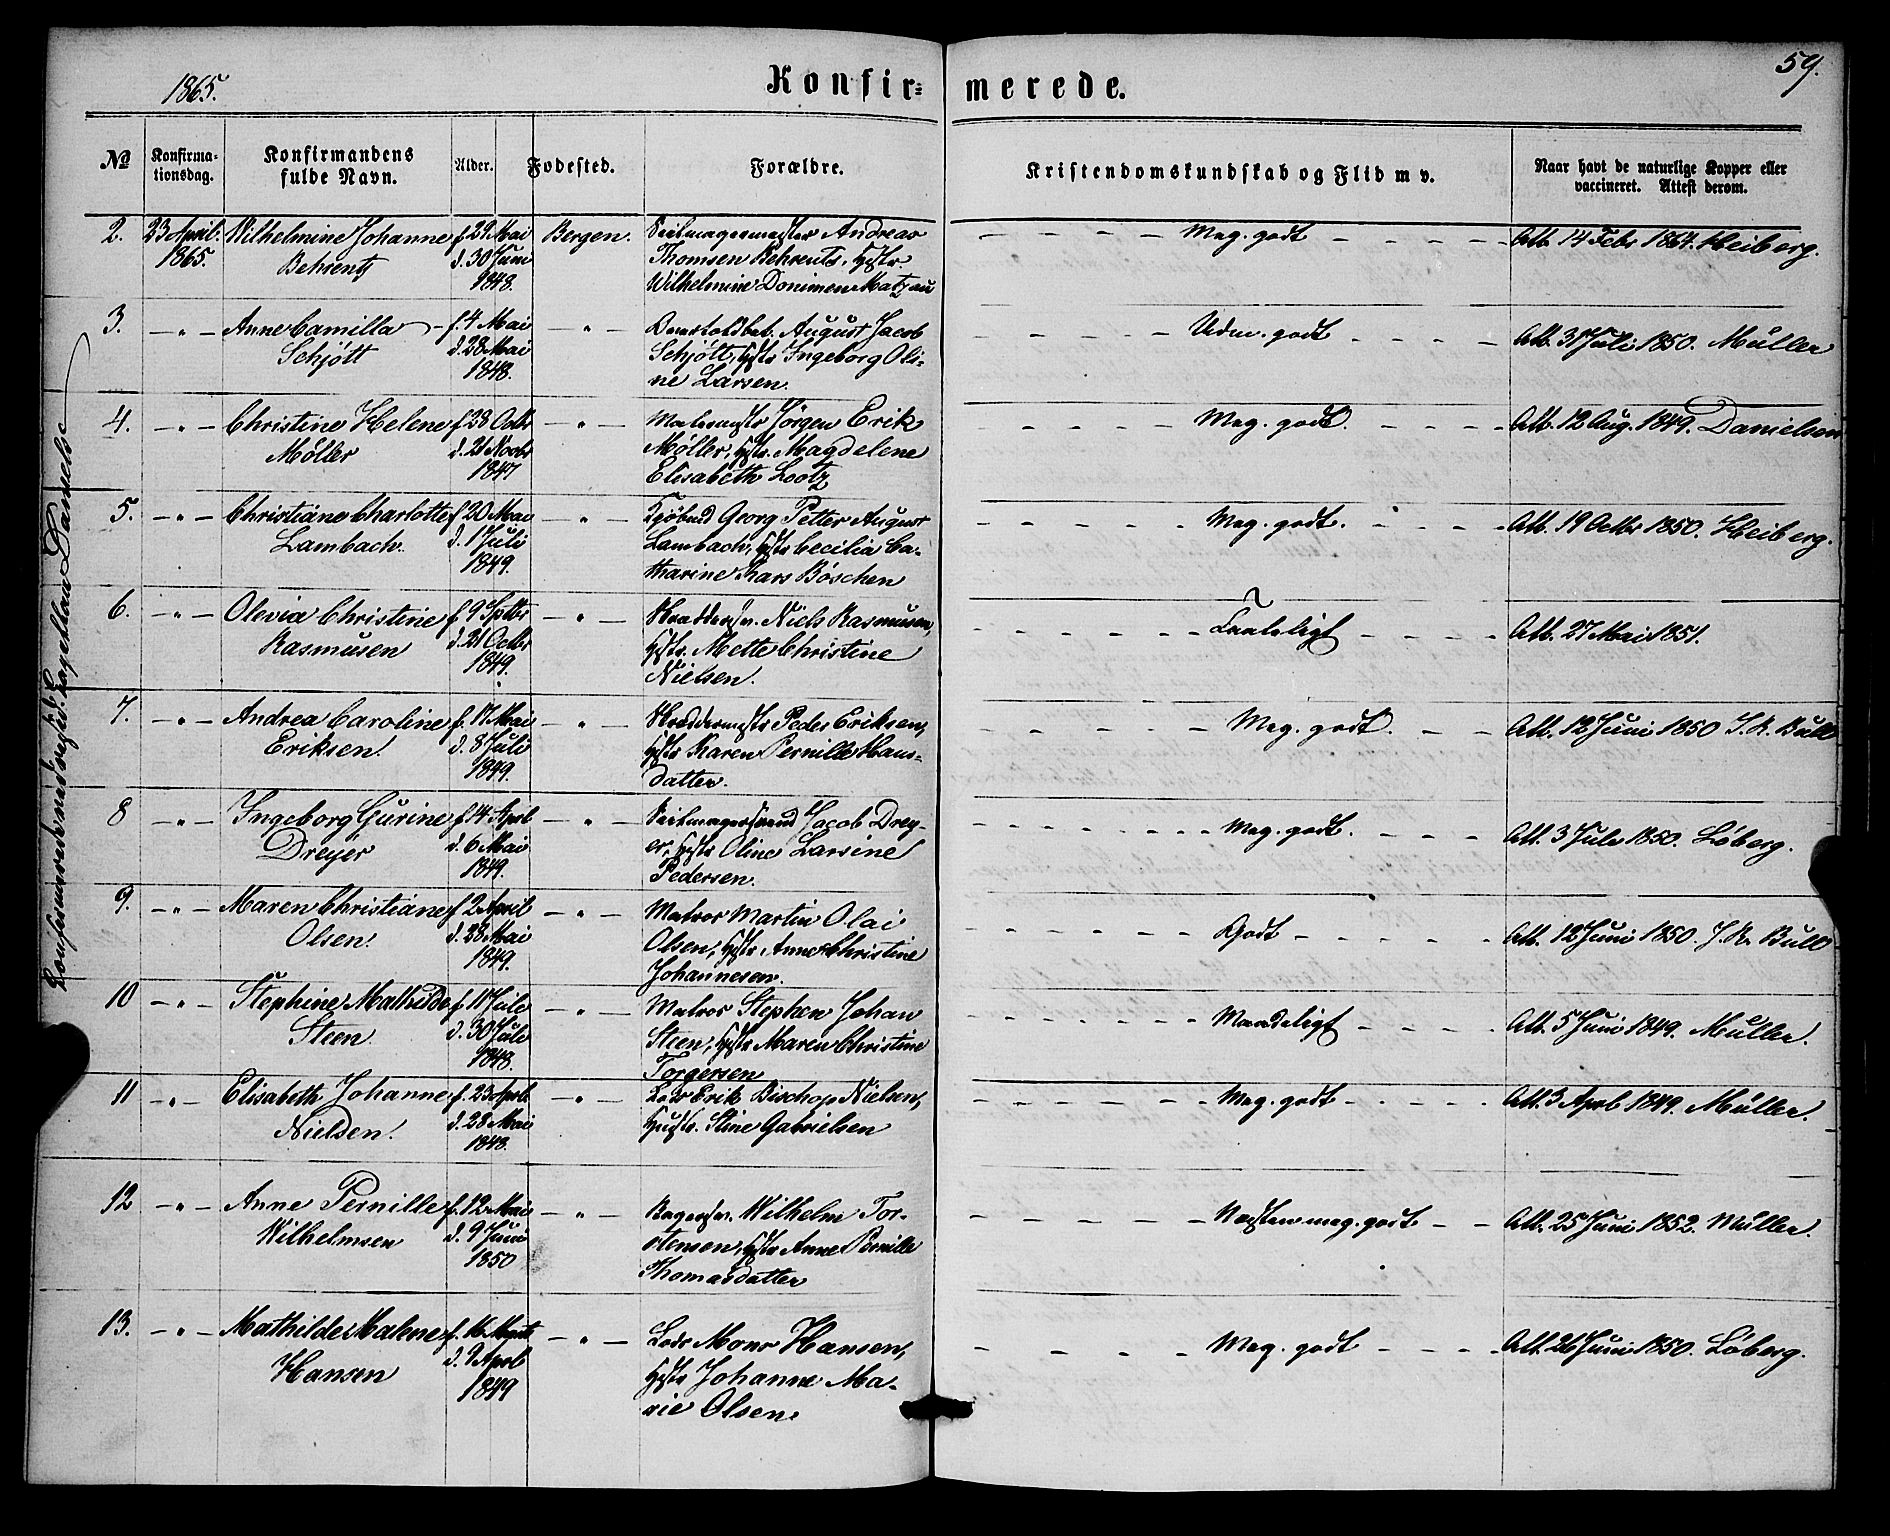 1865.
Konfir-merede.
59.
№
Konfirma-tionsdag.
Konfirmandens fulde Navn.
Alder.
Fødested.
Forældre.
Kristendomskundskab og Flid m v.
Naar havt de naturlige Kopper eller vaccineret. Attest derom.
2. 23 April. Wilhelmine Johanne f. 29 Mai Bergen. Seilmagermester Andreas — Meg. godt — Att. 14 Febr 1864. Heiberg.
1865. Behrents d. 30 Juni Thomsen Behrents, Hstr.
1848. Wilhelmine Matzau
3. — " — Anne Camilla f. 4 Mai — " — August Jacob — Udm. godt — Att. 31 Juli 1850. Müller
Schjött d. 28 Mai Schjött, Hstr Ingeborg Oli-
1848. ne Larsen.
4. — " — Christine Helene f 28 Octbr — " — Malermestr Jørgen Erik — Meg. godt. — Att. 12 Aug. 1849. Danielsen
Møller d. 21 Novbr Møller, Hstr. Magdelene
1847 Elisabeth Lootz
5. — " — Christiane Charlotte f 20 Mai — " — Georg Petter August — Meg. godt. — Att. 19 Octbr 1850. Heiberg.
Lambach. d. 1 Juli Lambach, Hstr Cecilia Ca-
1849. tharine Böschen
6. — " — Olevia Christine f 9 Sptbr — " — Niels Rasmusen, — Taaleligt — Att. 27 Mai 1851.
Rasmusen d. 21 Octbr Hstr. Mette Christine
1849. Nielsen.
7. — " — Andrea Caroline f. 17 Mai — " — Skræddermestr Peder Eriksen, — Meg. godt. — Att. 12 Juni 1850 J. R. Bull
Eriksen. d. 8 Juli Hstr Karen Pernille Hans-
1849. datter.
8 — " — Ingeborg Gurine f 14 April — " — Seilmagersvend Jacob Drey- — Meg. godt. — Att. 3 Juli 1850. Löberg.
Dreyer d. 6 Mai er, Hstr Oline Larsene
1849. Pedersen.
9. — " — Maren Christiane f 2 April — " — Matros Martin Olai — Godt — Att. 12 Juni 1850. J. R. Bull
Olsen. d. 28 Mai Olsen, Hstr Anne Christine
1849. Johannesen.
10 — " — Stephine Mathilde f 17 Juli — " — Matros Stephen Johan — Maadeligt — Att. 5 Juni 1849. Müller.
Steen d. 30 Juli Steen, Hstr Maren Christine
1848. Torgersen
11 — " — Elisabeth Johanne f. 23 April — " — Lods Erik Bischop Nielsen, — Meg. godt — Att. 3 April 1849. Müller.
Nielsen. d. 28 Mai Hustr. Stine Gabrielsen
1848.
12 — " — Anne Pernille f. 12 Mai — " — Bagersv. Wilhelm Tor- — Næsten meg. godt — Att. 25 Juni 1852. Müller.
Wilhelmsen d. 9 Juni stensen, Hstr Anne Pernille
1850 Thomasdatter
13. — " — Mathilde Malene f. 16 Marts — " — Lods Mons Hansen, — Meg. godt — Att. 26 Juni 1850. Löberg.
Hansen d. 9 April Hstr Johanne Ma-
1849 rie Olsen.